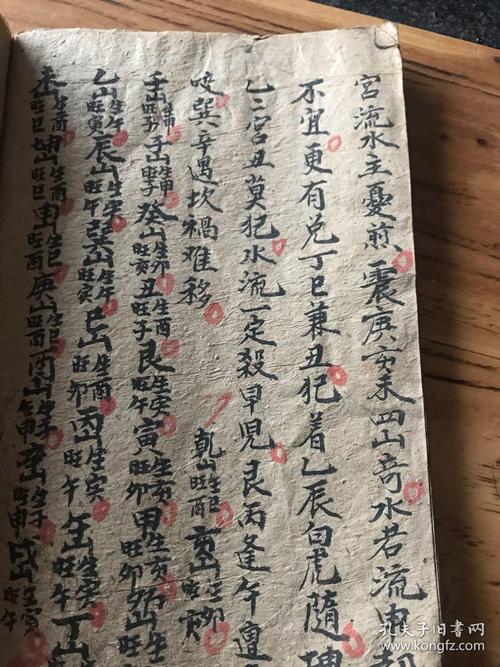 宫流水主憂煎震庚亥未四山奇水若流申
不宜更有兑丁巳兼丑犯着乙辰白虎隨
乙二宫丑莫犯水流一定殺早兒艮丙逢午遭
咬巽辛遇坎禍难移 乾山生巳旺酉亥山生卯旺寅
壬山生申旺子子山生申旺子癸山生卯旺亥丑生酉旺子艮生寅旺午寅生亥旺卯甲生亥旺卯
乙山生午旺寅辰山生亥旺午巽山生午旺寅巳山生酉旺卯丙山生寅旺午午山生寅旺午丁山
未生酉旺巳坤山生酉旺巳申生巳旺酉庚山生巳旺酉酉山生子旺申辛山生子旺申戌山生寅旺午
孔夫子旧书网
www.kongfz.com